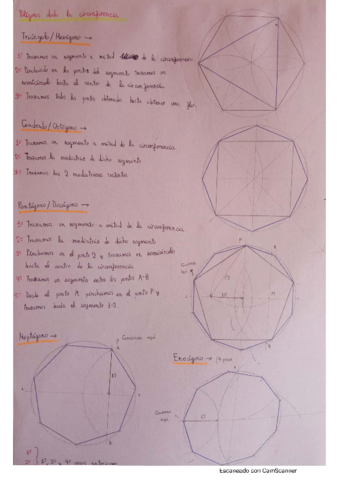 Polígonos dada la circunferencia
Triángulo/Hexágono →
1º Trazamos un segmento a mitad de la circunferencia.
2º Pinchando en los puntos del segmento trazamos un
semicírculo hasta el centro de la circunferencia
3º Trazamos todos los puntos obtenidos hasta obtener una fig.
Cuadrado/Octógono →
1º Trazamos un segmento a mitad de la circunferencia
2º Trazamos la mediatriz de dicho segmento
3º Trazamos las 2 mediatrices restantes
Pentágono/Decágono →
1º Trazamos un segmento a mitad de la circunferencia
2º Trazamos la mediatriz de dicho segmento
3º Pinchamos en el punto 2 y trazamos un semicírculo
hasta el centro de la circunferencia
4º Trazamos un segmento entre los puntos A-B
5º Desde el punto M pinchamos en el punto P y
trazamos hasta el segmento 1-2.
P
M
Heptágono →
Comienza aquí
A
B
Eneágono →
Comienza
aquí
1º, 2º, 3º y 4º
Escaneado con CamScanner